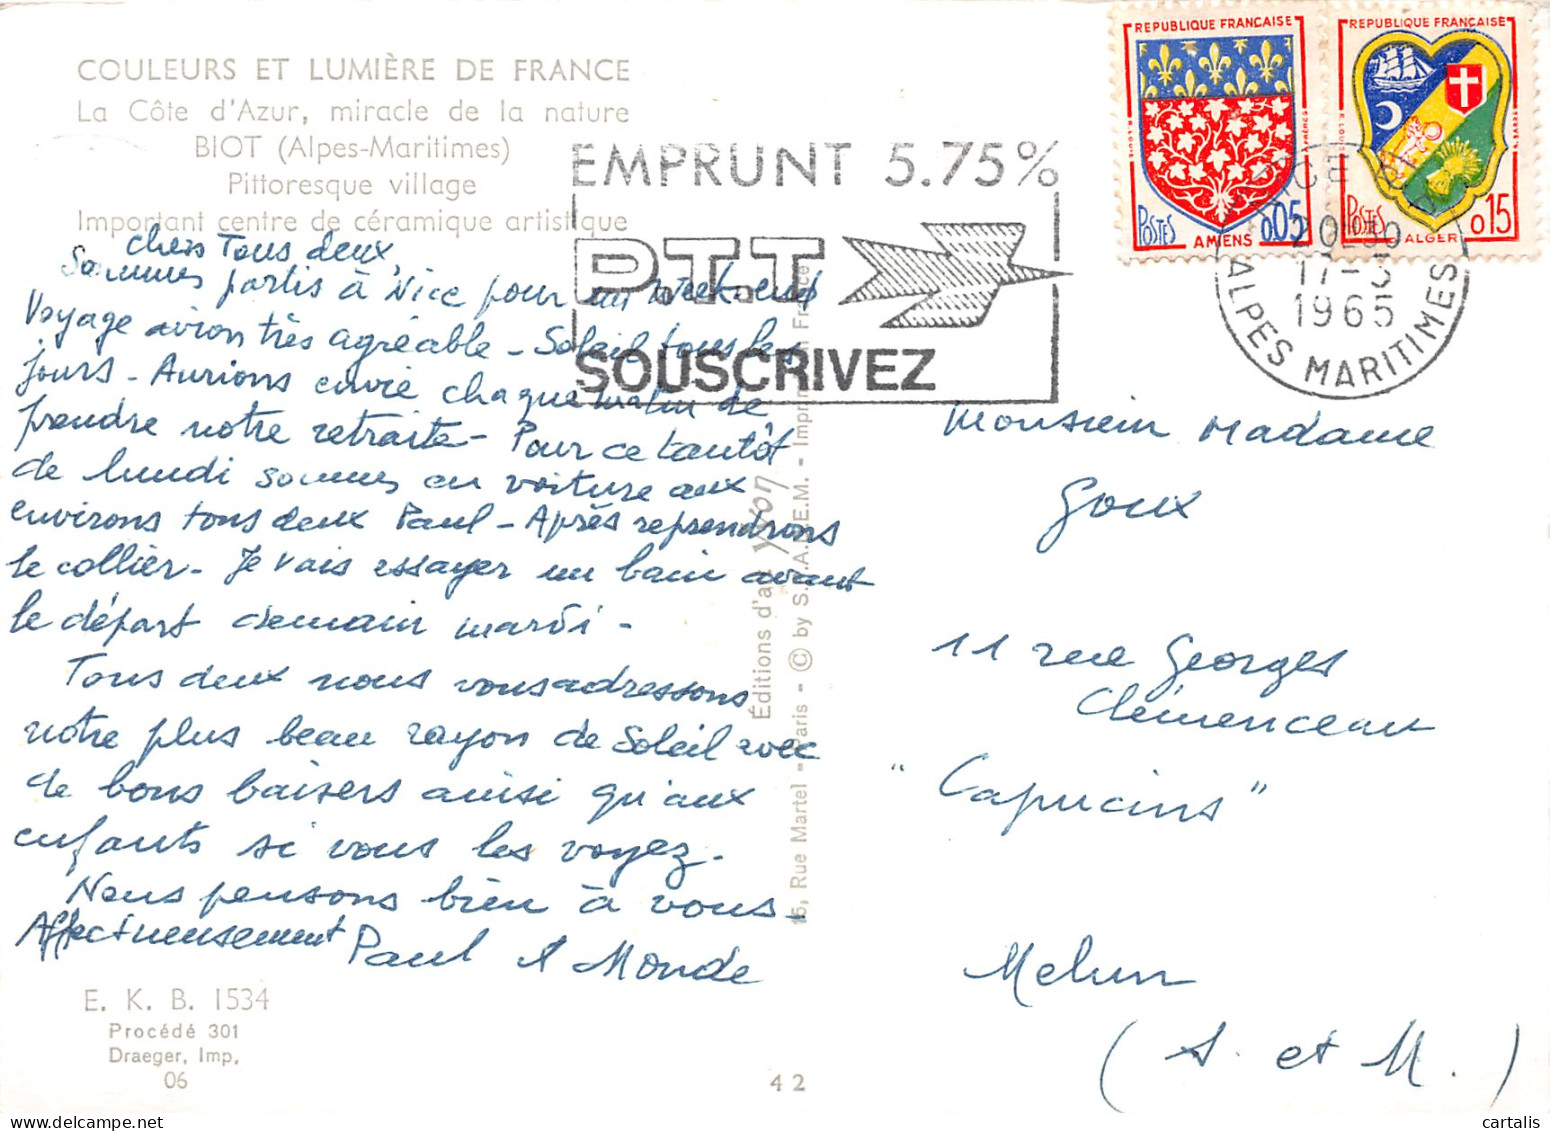 COULEURS ET LUMIÈRE DE FRANCE
La Côte d'Azur, miracle de la nature
BIOT (Alpes-Maritimes)
Pittoresque village
Important centre de céramique artistique
Chers Tous deux
Sommes partis à Nice pour un week-end
Voyage avion très agréable - Soleil tous les
jours - Aurions envie chaque matin de
prendre notre retraite - Pour ce tantôt
de lundi sommes en voiture aux
environs tous deux Paul - Après reprendrons
le collier - Je vais essayer un bain avant
le départ demain mardi -
Tous deux nous vous adressons
notre plus beau rayon de Soleil avec
de bons baisers ainsi qu'aux
enfants si vous les voyez.
Nous pensons bien à vous -
Affectueusement Paul et Monde
E. K. B. 1534
Procédé 301
Draeger, Imp.
06
42
Éditions d'art yvon
15, Rue Martel - Paris - © by S.P.A.D.E.M. - Imprimé en France
EMPRUNT 5.75%
P.T.T
SOUSCRIVEZ
REPUBLIQUE FRANÇAISE
POSTES
AMIENS
0,05
REPUBLIQUE FRANÇAISE
POSTES
ALGER
0,15
20-30
17-5
1965
ALPES MARITIMES
Monsieur Madame
Goux
11 rue Georges
Clémenceau
"Capucins"
Melun
(S. et M.)